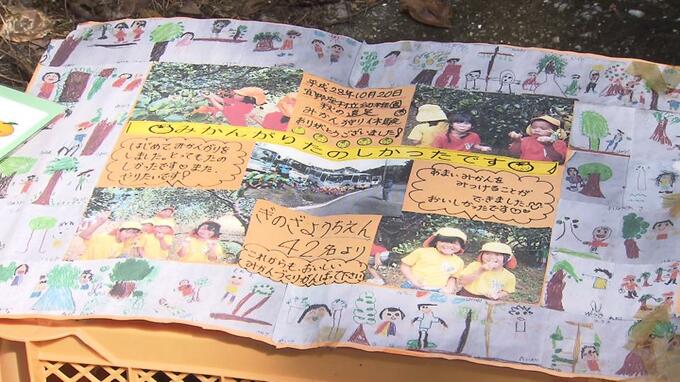 平成28年10月20日
宜野座村立幼稚園
秋の遠足
みかんがり体験
ありがとうございました!
みかんがりたのしかったです
はじめてみかんがりを
しました。とってもたの
しかったです また
やりたいです!
あまいみかんを
みつけることが
できました
おいしかったです
ぎのざようちえん
42名より
これからも、おいしい
みかんづくりがんばって下さい